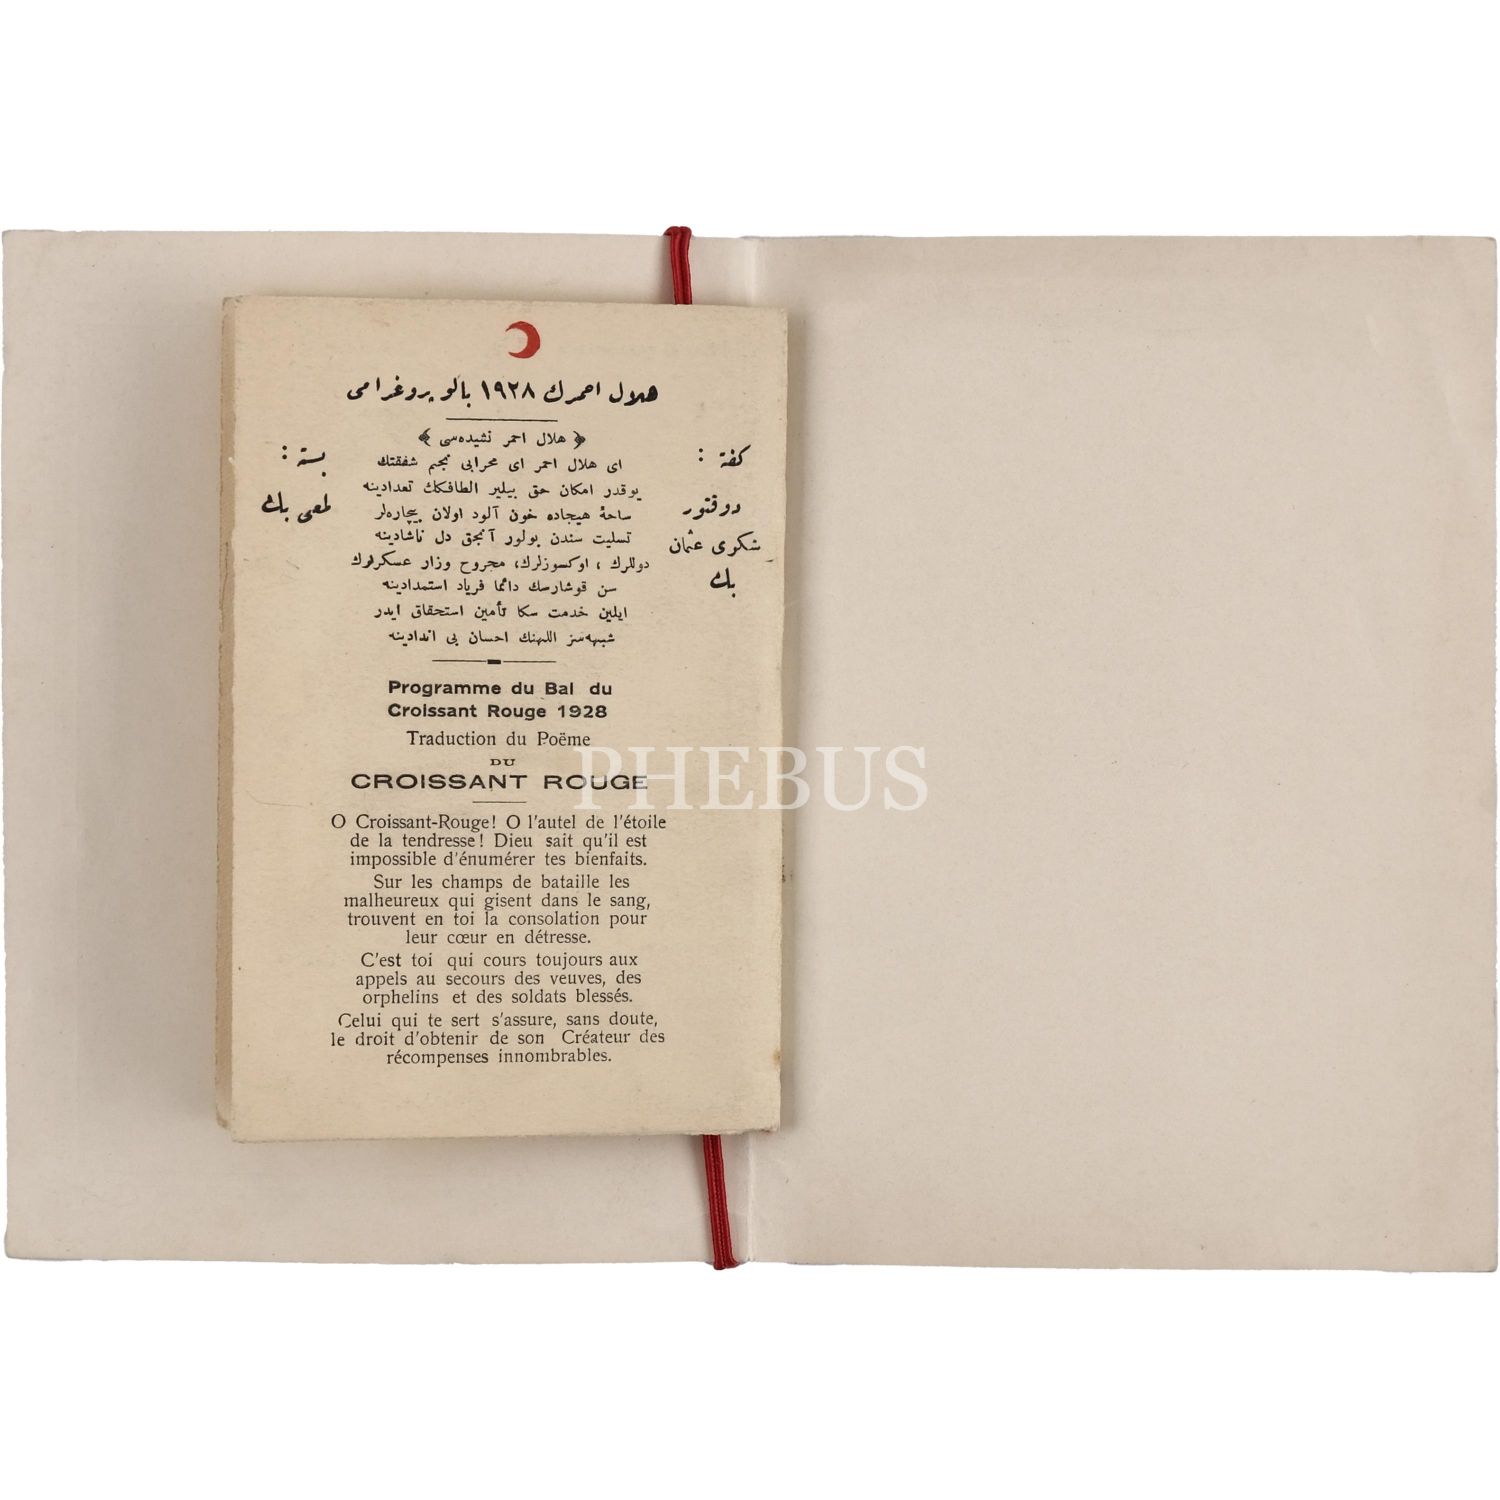 هلال احمرك ١٩٢٨ بالو پروغرامی
﴿ هلال احمر نشیده‌سی ﴾
ای هلال احمر ای محرابی نجم شفقتك
یوقدر امكان حق بیلیر الطافكك تعدادینه
ساحهٔ هیجاده خون آلود اولان بیچاره‌لر
تسلیت سندن بولور آنجق دل ناشادینه
دوللرك ، اوكسوزلرك، مجروح وزار عسكرلرك
سن قوشارسك دائما فریاد استمدادینه
ایلین خدمت سكا تأمین استحقاق ایدر
شبهه‌سز اللهنك احسان بی اندادینه
كفته :
دوقتور
شكری عثمان
بك
بسته :
لمعی بك
Programme du Bal du
Croissant Rouge 1928
Traduction du Poëme
DU
CROISSANT ROUGE
O Croissant-Rouge! O l'autel de l'étoile
de la tendresse! Dieu sait qu'il est
impossible d'énumérer tes bienfaits.
Sur les champs de bataille les
malheureux qui gisent dans le sang,
trouvent en toi la consolation pour
leur cœur en détresse.
C'est toi qui cours toujours aux
appels au secours des veuves, des
orphelins et des soldats blessés.
Celui qui te sert s'assure, sans doute,
le droit d'obtenir de son Créateur des
récompenses innombrables.
PHEBUS